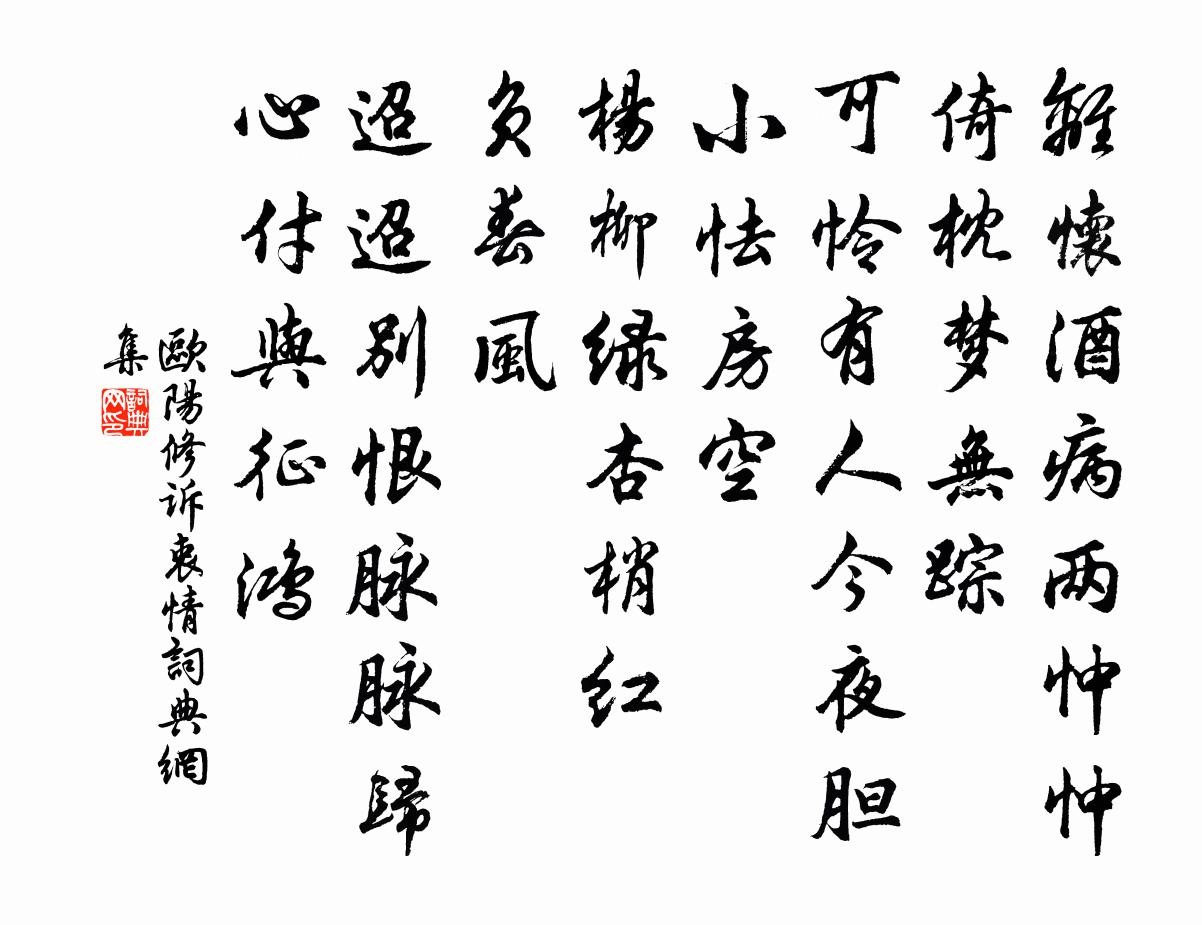 離懷酒病两忡忡
倚枕梦無踪
可怜有人今夜胆
小怯房空
楊柳绿杏梢红
负春風
迢迢别恨脉脉歸
心付與征鴻
歐陽修诉衷情詞典網
集
詞典
网印